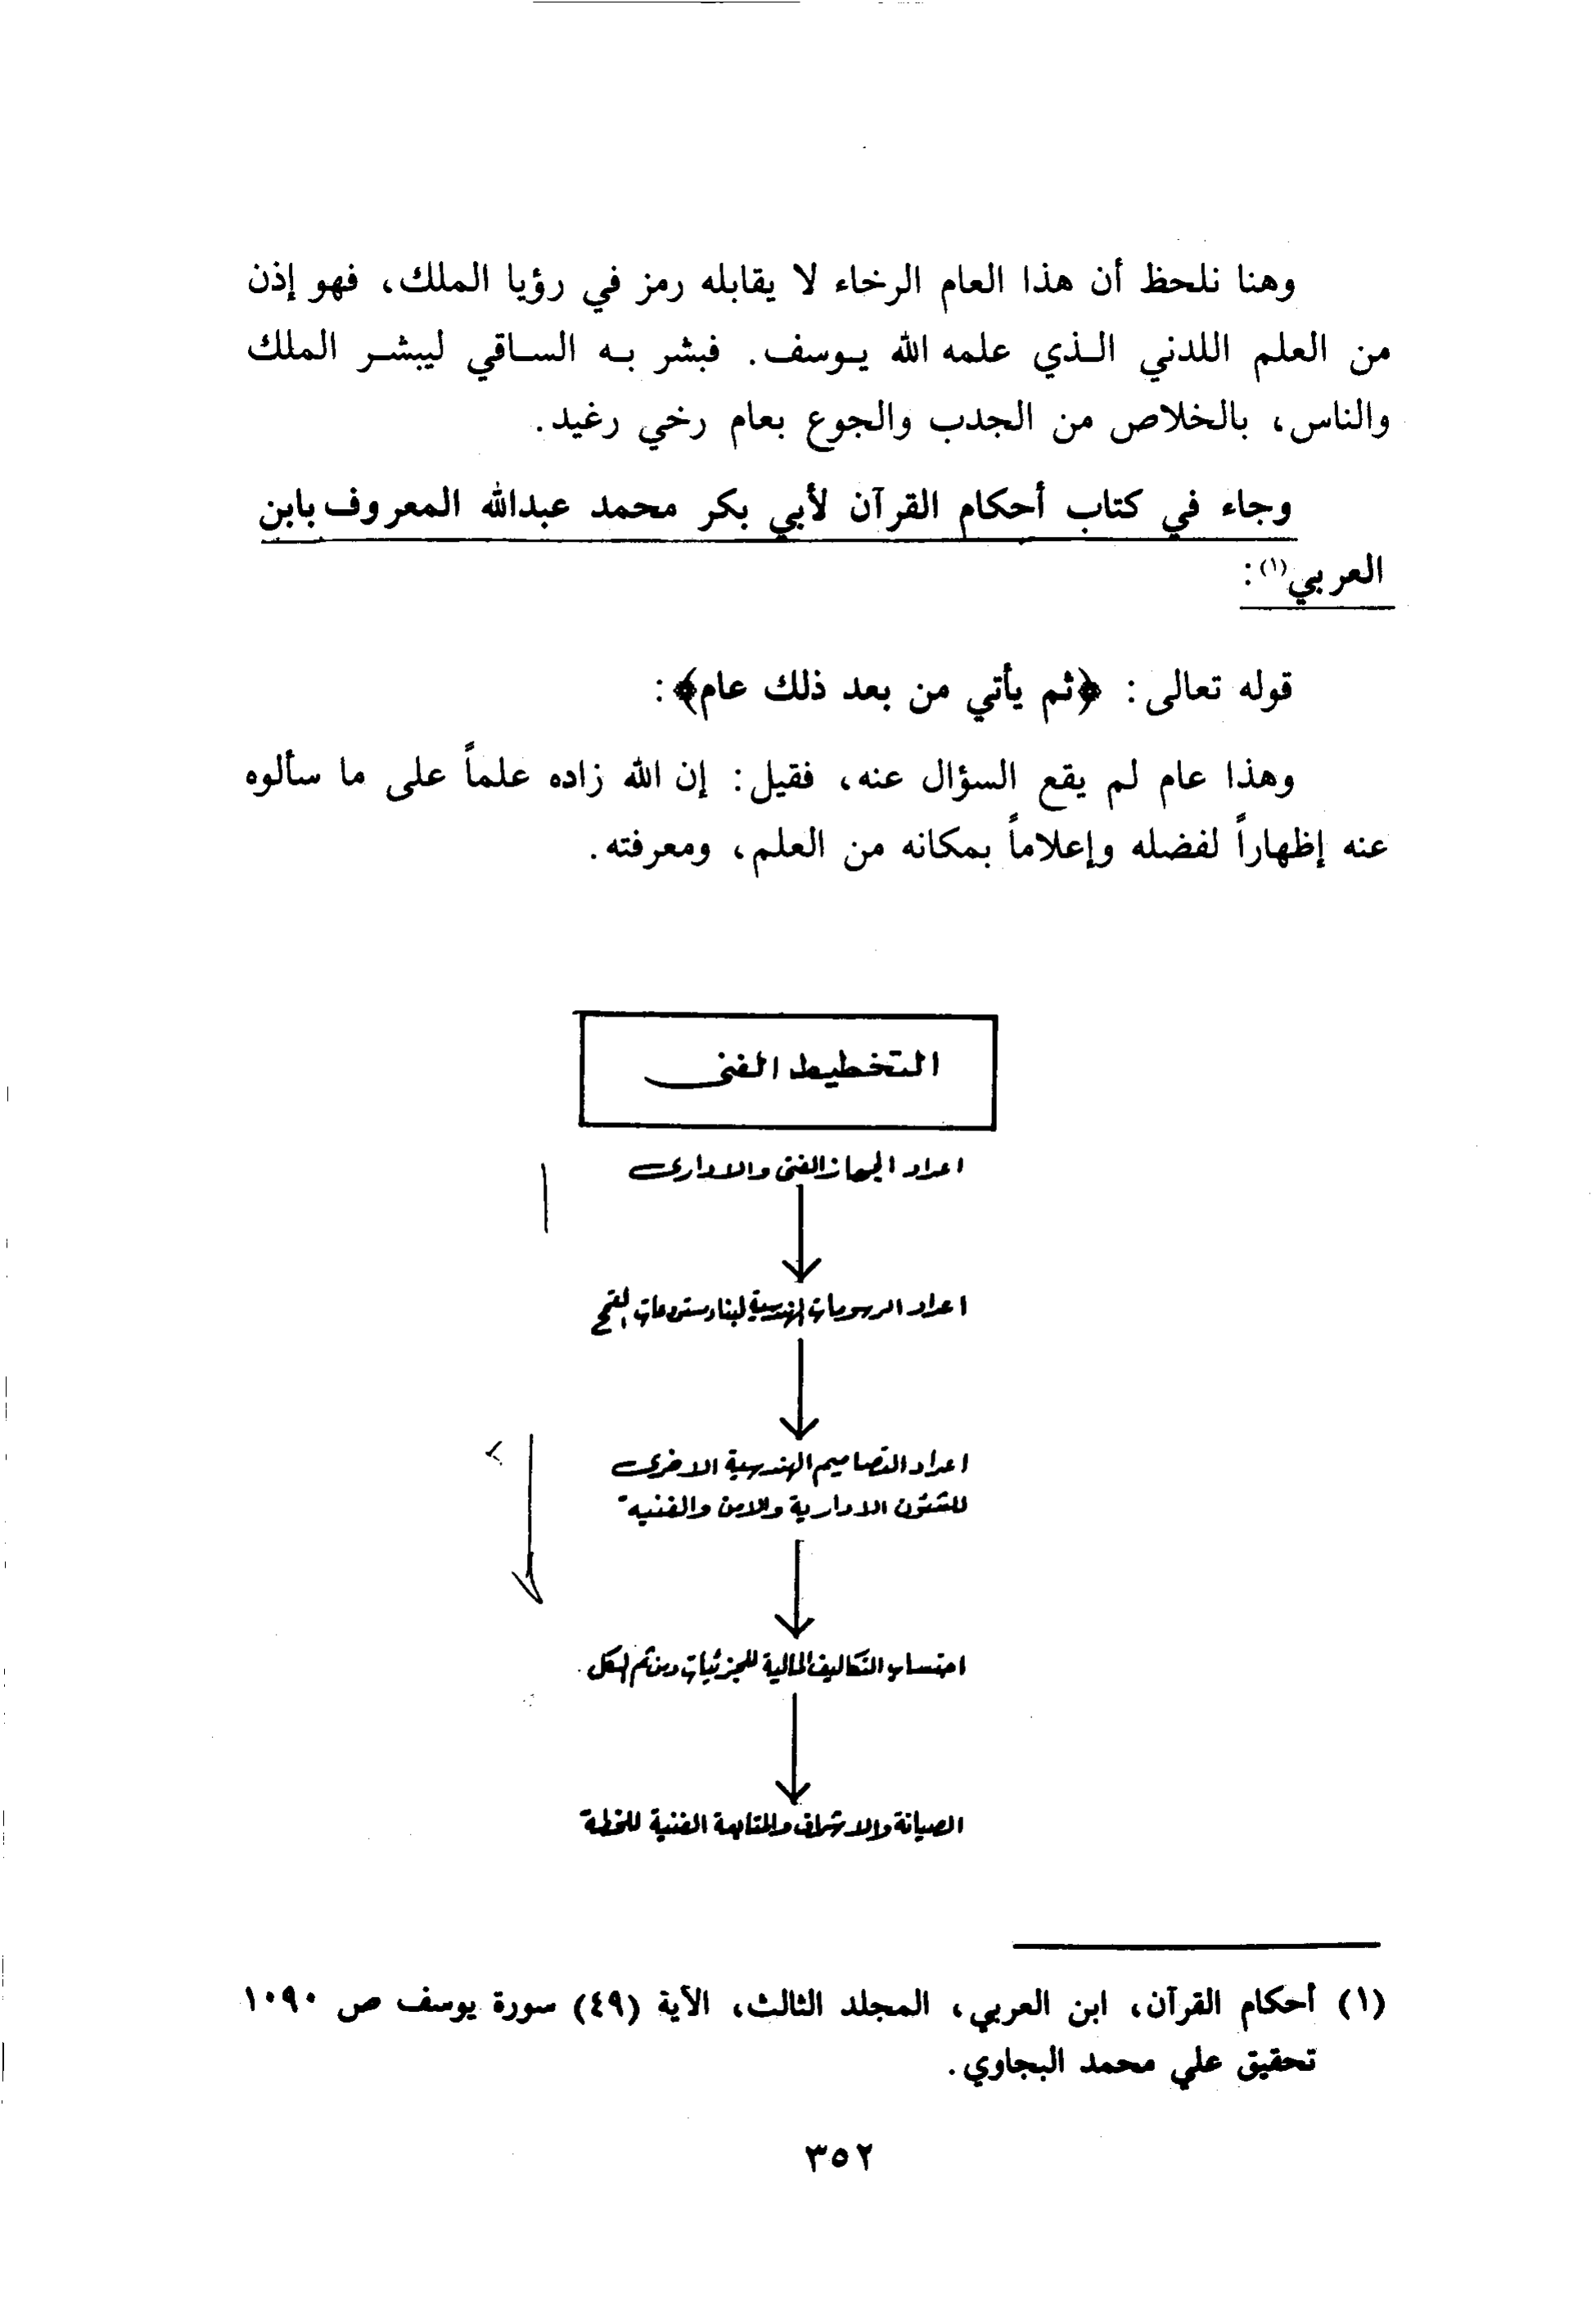 وهنا نلحظ أن هذا العام الرخاء لا يقابله رمز في رؤيا الملك، فهو إذن
من العلم اللدني الذي علمه الله يوسف. فبشر به الساقي ليبشر الملك
والناس، بالخلاص من الجدب والجوع بعام رخي رغيد.
وجاء في كتاب أحكام القرآن لأبي بكر محمد عبدالله المعروف بابن
العربي(١):
قوله تعالى: ﴿ثم يأتي من بعد ذلك عام﴾:
وهذا عام لم يقع السؤال عنه، فقيل: إن الله زاده علماً على ما سألوه
عنه إظهاراً لفضله وإعلاماً بمكانه من العلم، ومعرفته.
التخطيط الفنى
اعداد الجهاز الفنى والادارى
اعداد الرسومات الهندسية لبناء مستودعات القمح
اعداد التصاميم الهندسية الاخرى
للشئون الادارية والامن والفنية
احتساب التكاليف المالية للجزئيات ومن ثم الكل.
الصيانة والاشراف والمتابعة الفنية للخطة
(١) أحكام القرآن، ابن العربي، المجلد الثالث، الآية (٤٩) سورة يوسف ص ١٠٩٠
تحقيق علي محمد البجاوي.
٣٥٢